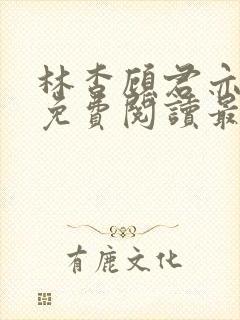 林杏顾君亦
免費閱讀最
有鹿文化